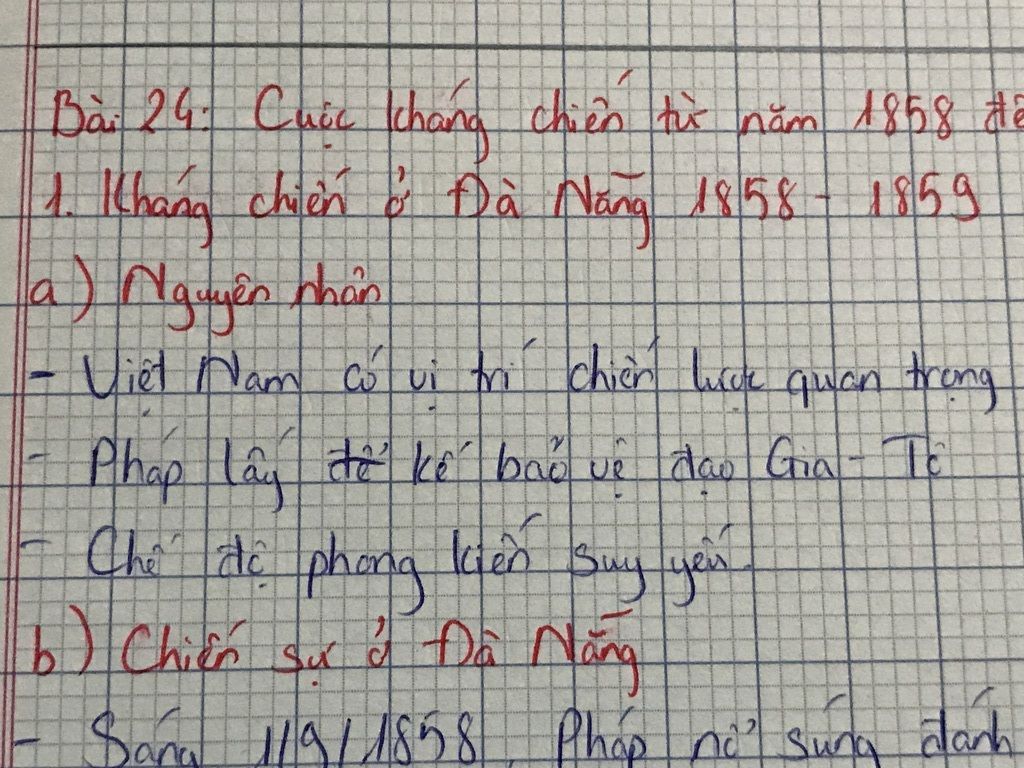 Bài 24: Cuộc kháng chiến từ năm 1858 đế
1. Kháng chiến ở Đà Nẵng 1858 - 1859
a) Nguyên nhân
- Việt Nam có vị trí chiến lược quan trọng
- Pháp lấy để kế bảo vệ đạo Gia - Tô
- Chế độ phong kiến suy yếu.
b) Chiến sự ở Đà Nẵng
- Sáng 1/9/1858, Pháp nổ súng đánh